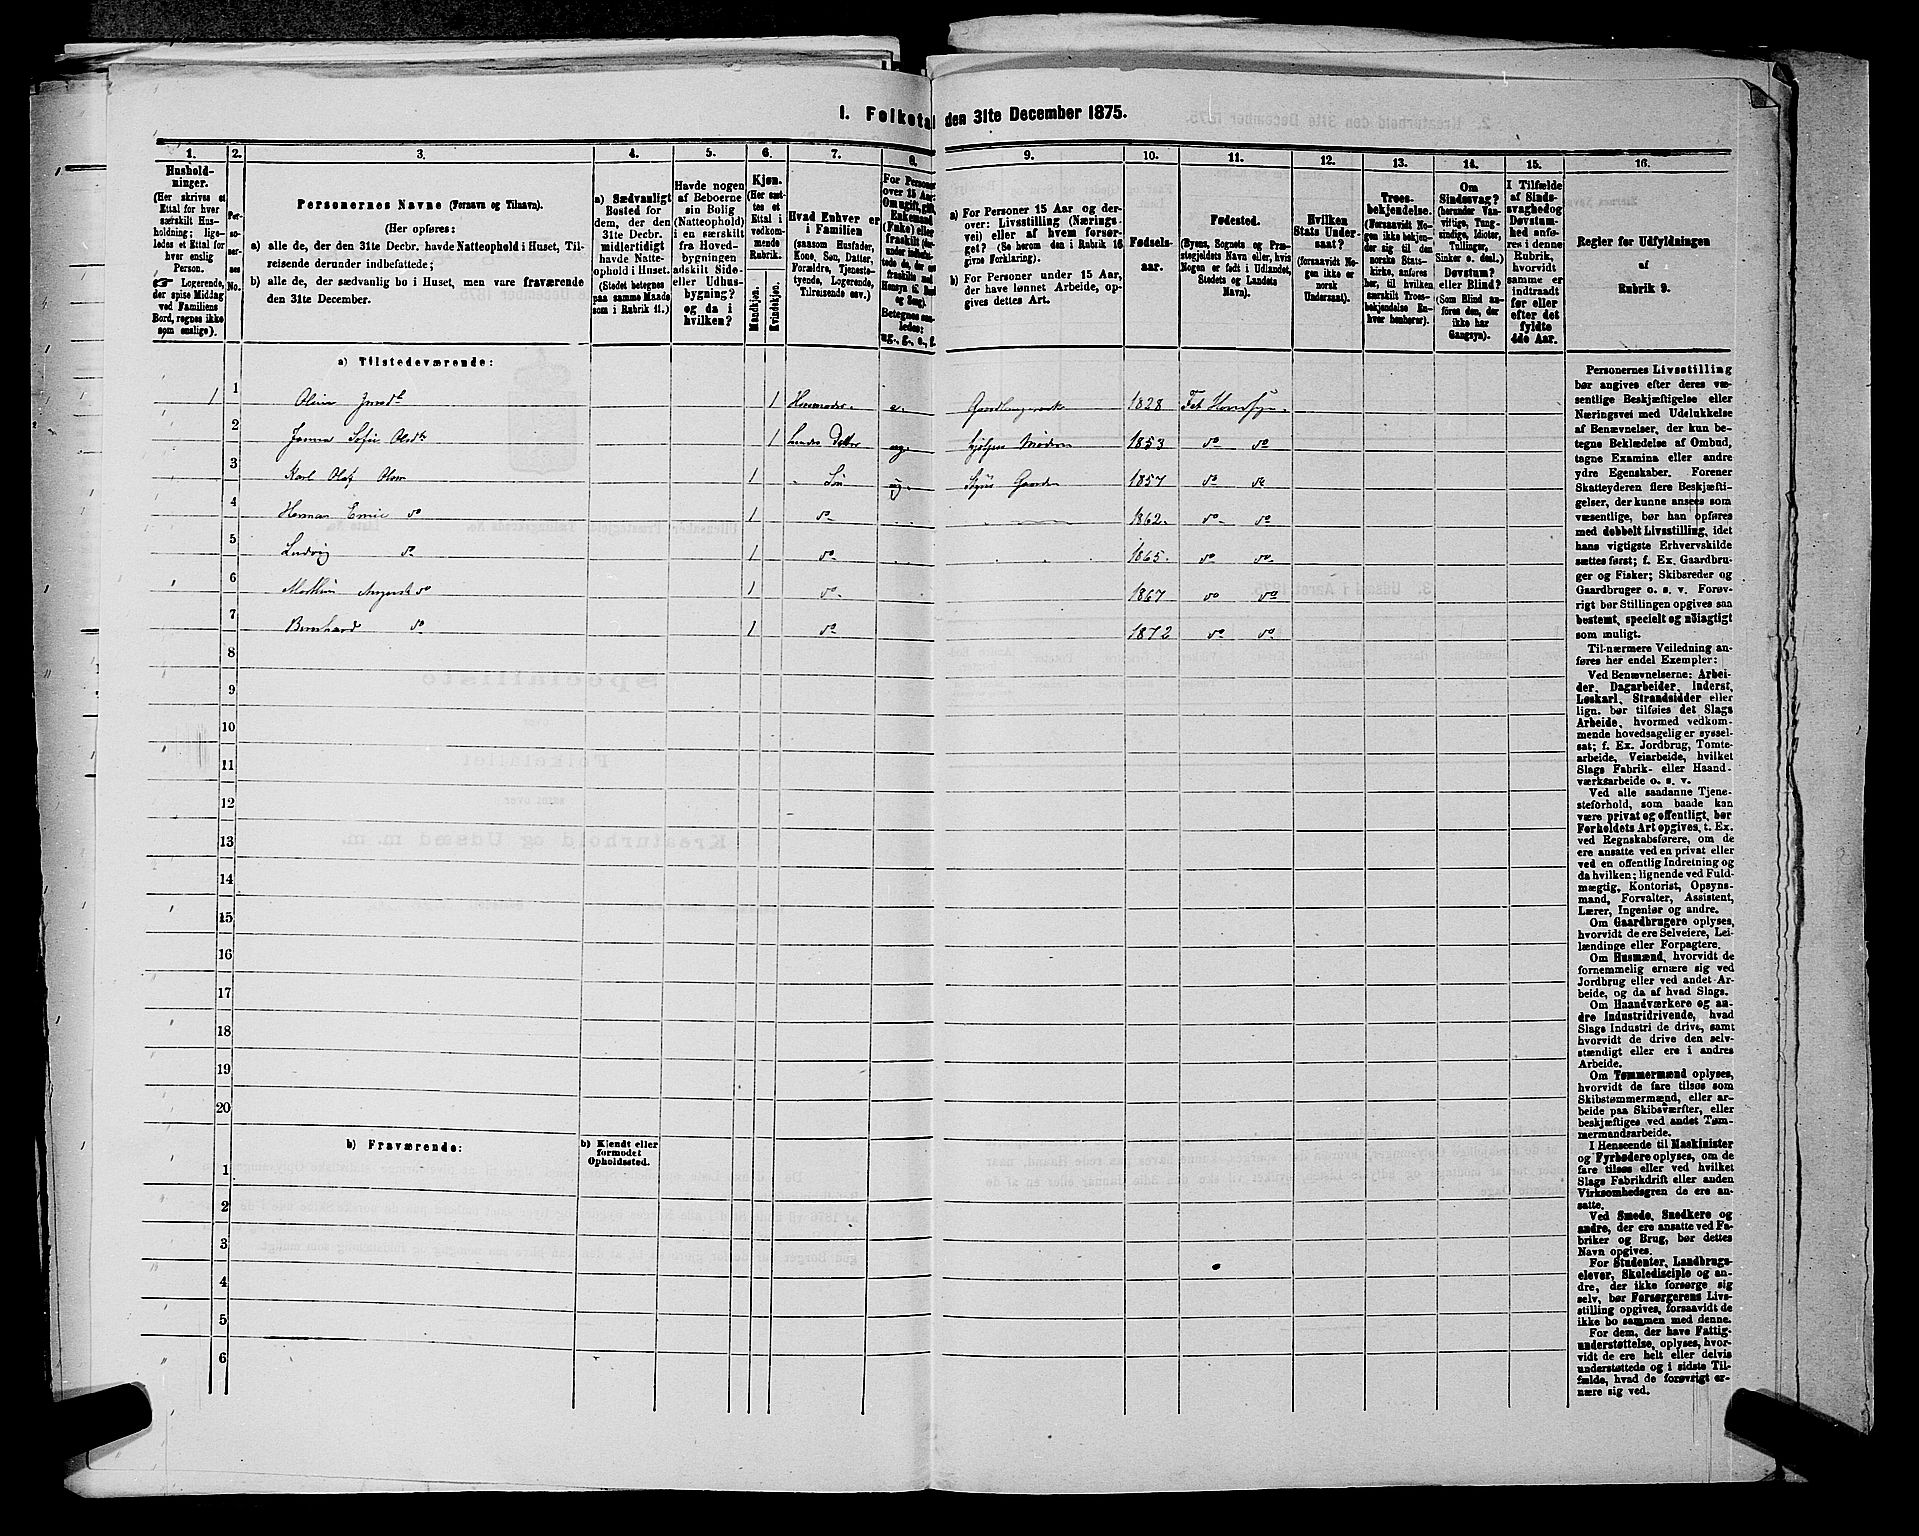 1. Folketal den 31te December 1875.
1.
2.
3.
4.
5.
6.
7.
8.
9.
10.
11.
12.
13.
14.
15.
16.
Hushold-
ninger.
(Her skrives et
Ettal for hver
særskilt Hus-
holdning; lige-
ledes et Ettal for
hver enslig
Person.
Logerende,
der spise Middag
ved Familiens
Bord, regnes ikke
som enslige).
Per-
so-
ner-
nes
No.
Personernes Navne (Fornavn og Tilnavn).
(Her opføres:
a) alle de, der den 31te Decbr. havde Natteophold i Huset, Til-
reisende derunder indbefattede;
b) alle de, der sædvanlig bo i Huset, men vare fraværende
den 31te December.
a) Sædvanligt
Bosted for
dem, der den
31te Decbr.
midlertidigt
havde Natte-
ophold i Huset.
(Stedet betegnes
paa samme Maade
som i Rubrik 11.)
Havde nogen
af Beboerne
sin Bolig
(Natteophold)
i en særskilt
fra Hoved-
bygningen
adskilt Side-
eller Udhus-
bygning?
og da i
hvilken?
Kjøn.
(Her sæt-
tes et
Ettal i
vedkom-
mende
Rubrik.
Mandkjøn.
Kvindekjøn.
Hvad Enhver er
i Familien
(saasom Husfader,
Kone, Søn, Datter,
Forældre, Tjeneste-
tyende, Logerende,
Tilreisende osv.)
For Personer
over 15 Aar:
Om ugift, gift,
Enkemand
(Enke) eller
fraskilt
Betegnes saa-
ledes:
ug., g., e., f.
a) For Personer 15 Aar og der-
over: Livsstilling (Nærings-
vei) eller af hvem forsør-
get? (Se herom den i Rubrik 16
givne Forklaring).
b) For Personer under 15 Aar,
der have lønnet Arbeide, op-
gives dettes Art.
Fødsels-
aar.
Fødested.
(Byens, Sognets og Præ-
stegjeldets Navn eller, hvis
Nogen er født i Udlandet,
Stedets og Landets
Navn).
Hvilken
Stats Under-
saat?
(forsaavidt No-
gen ikke er
norsk
Undersaat).
Troes-
bekjendelse.
(Forsaavidt No-
gen ikke bekjen-
der sig til den
norske Stats-
kirke, anføres
her, til hvilken
særskilt Troes-
bekjendelse En-
hver henhører).
Om
Sindssvag?
(herunder Van-
vittige, Tung-
sindige, Idioter,
Tullinger,
Sinker o. desl.)
Døvstum?
eller Blind?
(Som Blind an-
føres den, der
ikke har
Gangsyn).
I Tilfælde
af Sinds-
svaghed og
Døvstum-
hed anfø-
res i denne
Rubrik,
hvorvidt
samme er
indtraadt
før eller
efter det
fyldte
4de Aar.
Regler for Udfyldningen
af
Rubrik 9.
a) Tilstedeværende:
1 1 1 e. 1828
2 Sofie 1 Datter ug. hjelper Moderen 1853 do do
3 Karl Olaf Olsen 1 Søn ug. 1857 do do
4 Herman do 1 do 1862 do do
5 Ludvig do 1 do 1865 do do
6 do 1 do 1867 do do
7 Bernhard do 1 do 1872 do do
8
9
10
11
12
13
14
15
16
17
18
19
20
b) Fraværende:
b) Kjendt eller
formodet
Opholdssted.
1
2
3
4
5
6
Personernes Livsstilling
bør angives efter deres væ-
sentlige Beskjæftigelse eller
Næringsvei med Udelukkelse
af Benævnelser, der kun be-
tegne Beklædelse af Ombud,
tagne Examina eller andre
ydre Egenskaber. Forener
Skatteyderen flere Beskjæfti-
gelser, der kunne ansees som
væsentlige, bør han opføres
med dobbelt Livsstilling, idet
hans vigtigste Erhvervskilde
sættes først; f. Ex. Gaardbru-
ger og Fisker; Skibsreder og
Gaardbruger o. s. v. Forøv-
rigt bør Stillingen opgives saa
bestemt, specielt og nøiagtigt
som muligt.
Til nærmere Veiledning an-
føres her endel Exempler:
Ved Benævnelserne: Arbei-
der, Dagarbeider, Inderst,
Løskarl, Strandsidder eller
lign. bør tilføies det Slags
Arbeide, hvormed vedkom-
mende hovedsagelig er syssel-
sat; f. Ex. Jordbrug, Tomte-
arbeide, Veiarbeide, hvilket
Slags Fabrik- eller Haand-
værksarbeide o. s. v.
Ved alle saadanne Tjene-
steforhold, som baade kan
være privat og offentligt, bør
Forholdets Art opgives, t. Ex.
ved Regnskabsførere, om de
ere ansatte ved en privat eller
ved en offentlig Indretning og
da hvilken; lignende ved Fuld-
mægtig, Kontorist, Opsyns-
mand, Forvalter, Assistent,
Lærer, Ingeniør og andre.
Om Gaardbrugere oplyses,
hvorvidt de ere Selveiere, Lei-
lændinge eller Forpagtere.
Om Husmænd, hvorvidt de
fornemmelig ernære sig ved
Jordbrug eller ved andet Ar-
beide, og da af hvad Slags.
Om Haandværkere og an-
dre Industridrivende, hvad
Slags Industri de drive, samt
hvorvidt de drive den selv-
stændigt eller ere i andres
Arbeide.
Om Tømmermænd oplyses,
hvorvidt de fare tilsøs som
Skibstømmermænd, eller ar-
beide paa Skibsværfter, eller
beskjæftiges ved andet Tøm-
mermandsarbeide.
I Henseende til Maskinister
og Fyrbødere oplyses, om de
fare tilsøs eller ved hvilket
Slags Fabrikdrift eller anden
Virksomhedsgren de ere an-
satte.
Ved Smede, Snedkere og
andre, der ere ansatte ved Fa-
briker og Brug, bør dettes
Navn opgives.
For Studenter, Landbrugs-
elever, Skoledisciple og an-
dre, der ikke forsørge sig
selv, bør Forsørgerens Livs-
stilling opgives, forsaavidt de
ikke bo sammen med denne.
For dem, der have Fattig-
understøttelse, oplyses, hvor-
vidt de ere helt eller delvis
understøttede og i sidste Til-
fælde, hvad de forøvrigt er-
nære sig ved.